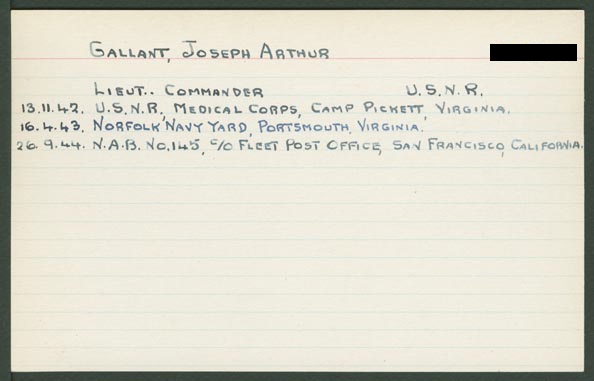 GALLANT, JOSEPH ARTHUR
LIEUT.. COMMANDER U.S.N.R.
13.11.42. U.S.N.R, MEDICAL CORPS, CAMP PICKETT, VIRGINIA.
16.4.43. NORFOLK NAVY YARD, PORTSMOUTH, VIRGINIA.
26.9.44. N.A.B. NO.145, C/O FLEET POST OFFICE, SAN FRANCISCO, CALIFORNIA.